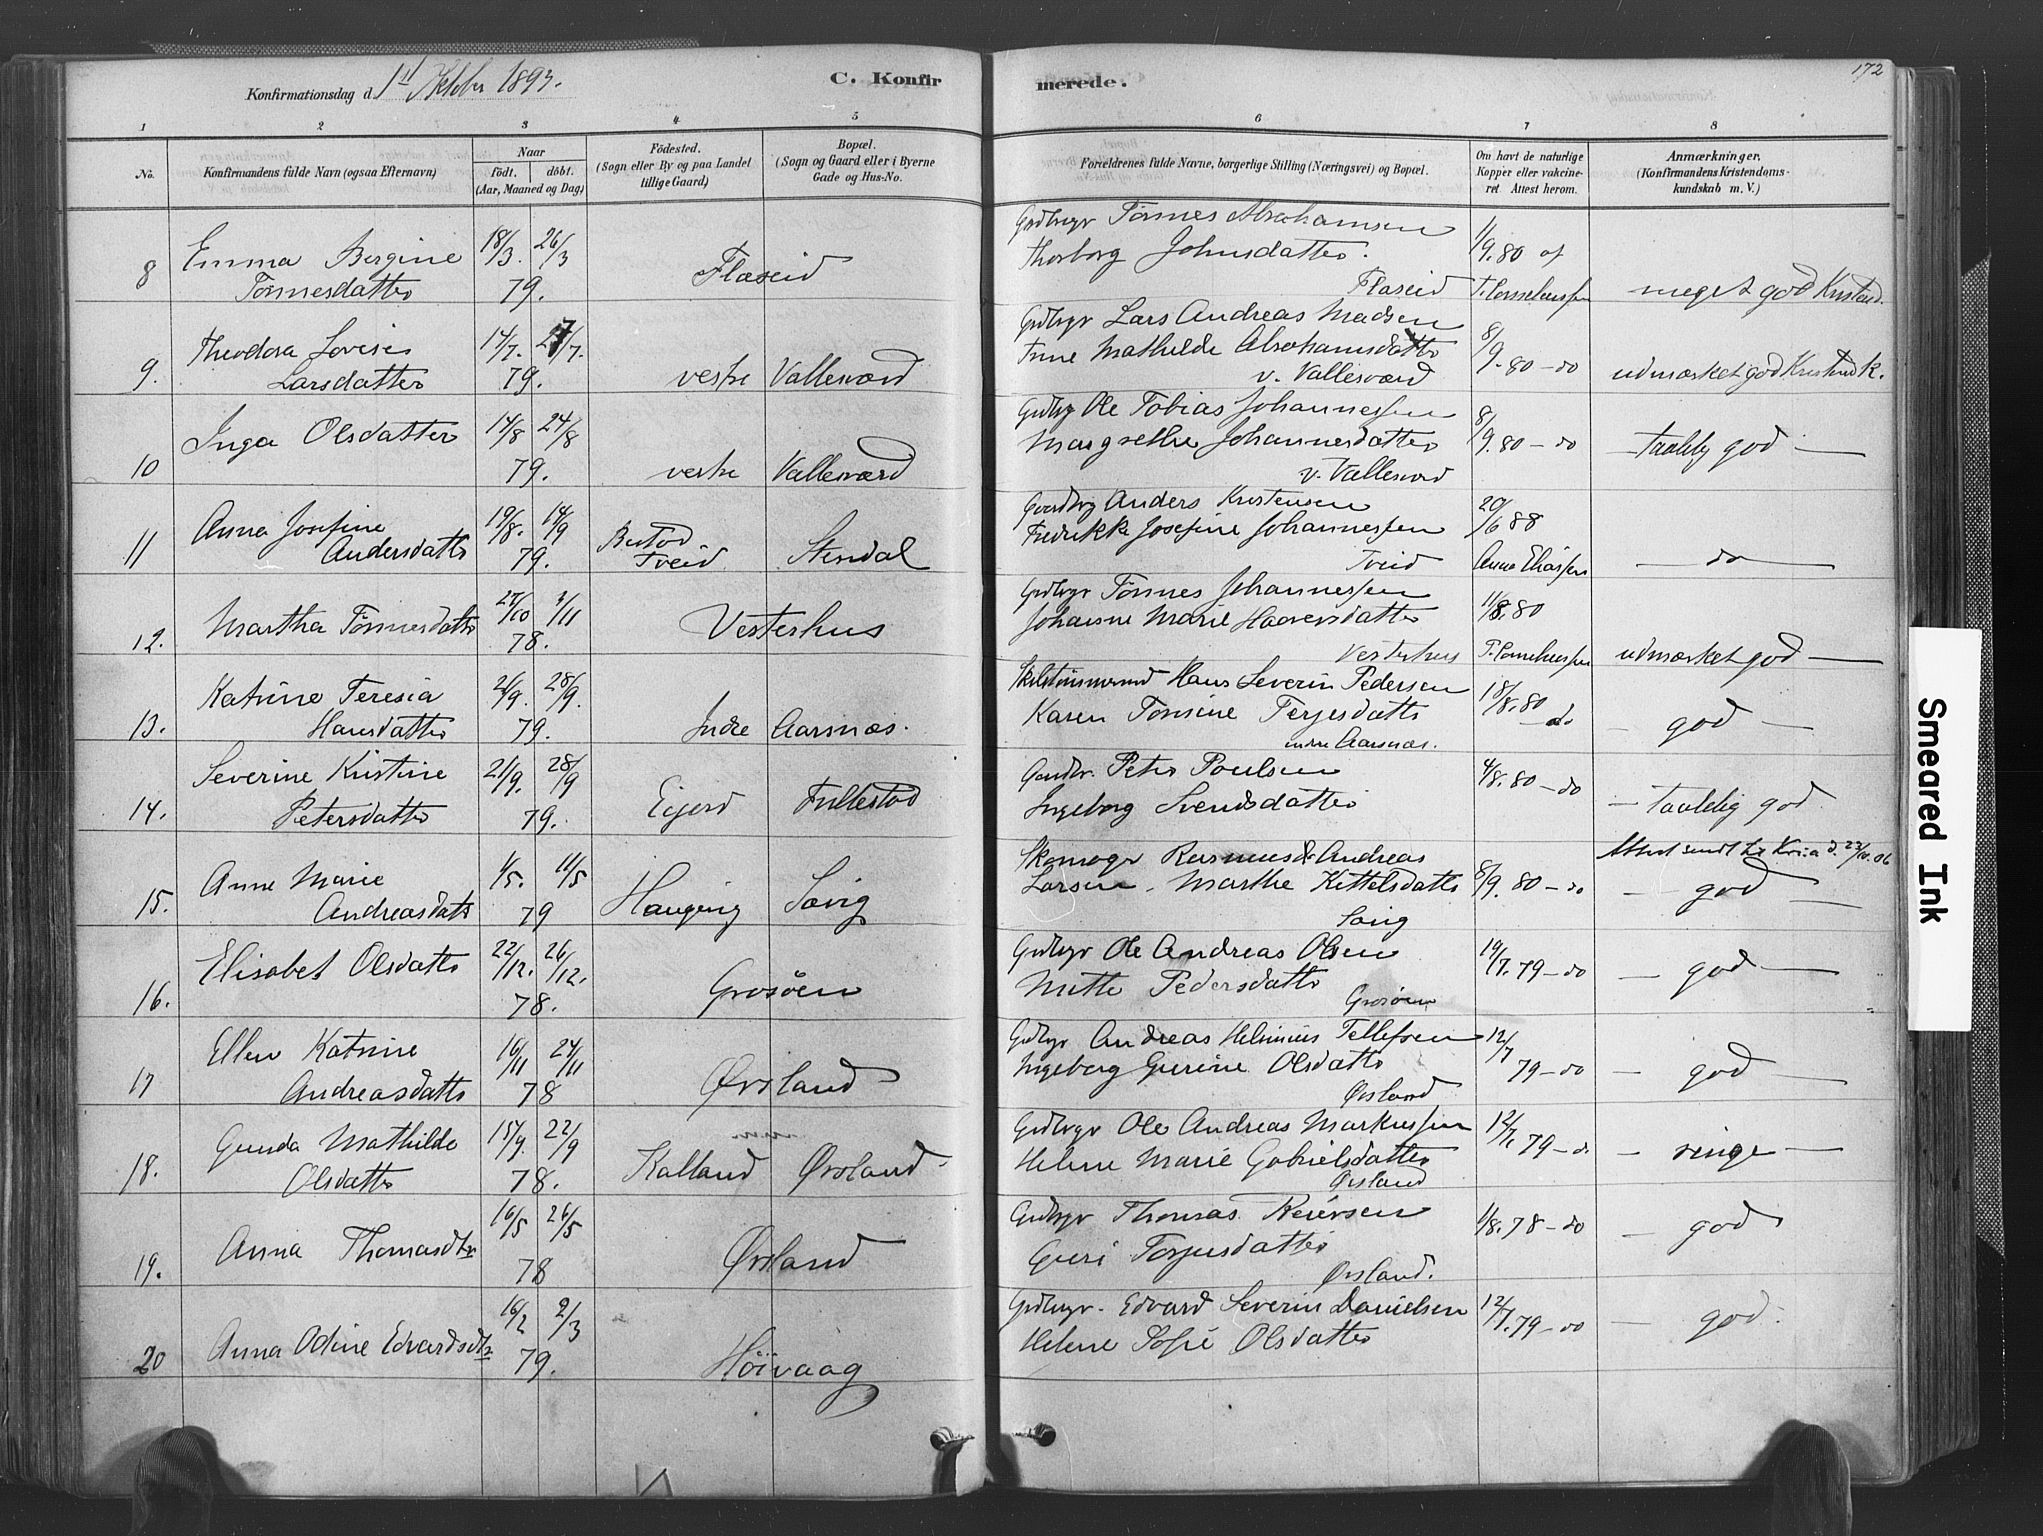 Konfirmationsdag d. 1ste Oktober 1893.
C. Konfirmerede.
172
1 2 3 4 5 6 7 8
No.
Konfirmandens fulde Navn (ogsaa Efternavn)
Naar
födt. döbt.
(Aar, Maaned og Dag)
Födested.
(Sogn eller By og paa Landet
tillige Gaard)
Bopæl.
(Sogn og Gaard eller i Byerne
Gade og Hus-No.
Forældrenes fulde Navne, borgerlige Stilling (Næringsvei) og Bopæl.
Om havt de naturlige
Kopper eller vakcine-
ret Attest herom.
Anmærkninger.
(Konfirmandens Kristendoms-
kundskab m. V.)
8 Emma Bergine
Tönnesdatter
18/3. 26/3
79.
Flaseid
Grdbrgr Tönnes Abrahamsen
Thorborg Johnsdatter.
Flaseid
1/9. 80 af
meget god Kristend.
9. Theodora Lovise
Larsdatter
14/7. 27/7.
79.
vestre Vallesværd
Grdbrgr Lars Andreas Madsen
Trine Mathilde Abrahamsdatter
v. Vallesværd
8/9. 80 - do
udmærket god Kristendk.
10 Inga Olsdatter
14/8 24/8
79.
vestre Vallesværd
Grdbrg Ole Tobias Johannessen
Margrethe Johannesdatter
v. Vallesværd
8/9. 80 - do
- taalelig god -
11 Anna Josefine
Andersdatter
19/8. 14/9
79.
Tveid Stendal
Gaardbrg Anders Kristensen
Fredrikke Josefine Johannessen
Tveid
20/6 88
Anne Eliassen
- do -
12. Martha Tönnesdatter
27/10 3/11
78.
Vesterhus
Grdbrgr Tönnes Johannessen
Johanne Marie Haaversdatter
Vesterhus
11/8. 80
udmærket god -
13. Katrine Teresia
Hansdatter
2/9. 28/9.
79.
Indre Aarsnæs.
Hans Severin Pedersen
Karen Tomine Terjesdatter
indre Aarsnæs.
18/8. 80
- do
- god -
14. Severine Kristine
Petersdatter
21/9. 28/9
79.
Ejerd Fullestad
Gaardbr. Peter Poulsen
Ingeborg Svendsdatter
4/8. 80 - do
- taalelig god
15. Anne Marie
Andreasdatter
1/5. 11/5
79
Haugeng Savig
Skomagr Rasmus Andreas
Larsen. Marthe Kittelsdatter
Savig
8/9. 80 - do
Attest sendt til Kr.ia d. 22/10. 06
- god -
16. Elisabet Olsdatter
22/12. 26/12.
78.
Grosöen
Grdbrgr Ole Andreas Olsen
Mette Pedersdatter
Grosöen
19/7. 79 - do
- god -
17 Ellen Katrine
Andreasdatter
16/11 24/11
78
Ørsland
Grdbrgr Andreas Helmius Tellefsen
Ingeborg Gurine Olsdatter
Ørsland
12/7 79 - do
- god -
18. Gunda Mathilde
Olsdatter
15/9. 22/9
78.
Kalland Ørsland
Grdbrgr Ole Andreas Markussen
Helene Marie Gabrielsdatter
Ørsland
12/7. 79 - do
- ringe -
19. Anna Thomasdtr
16/5 26/5
78
Ørsland
Grdbrgr Thomas Reiersen
Guri Torjusdatter
Ørsland.
1/8. 78 - do
- god
20 Anna Odine Edvardsdtr
16/2 2/3
79.
Höivaag
Grdbrgr. Edvard Severin Danielsen
Helene Sofie Olsdatter
12/7. 79 - do
- god.
Smeared Ink